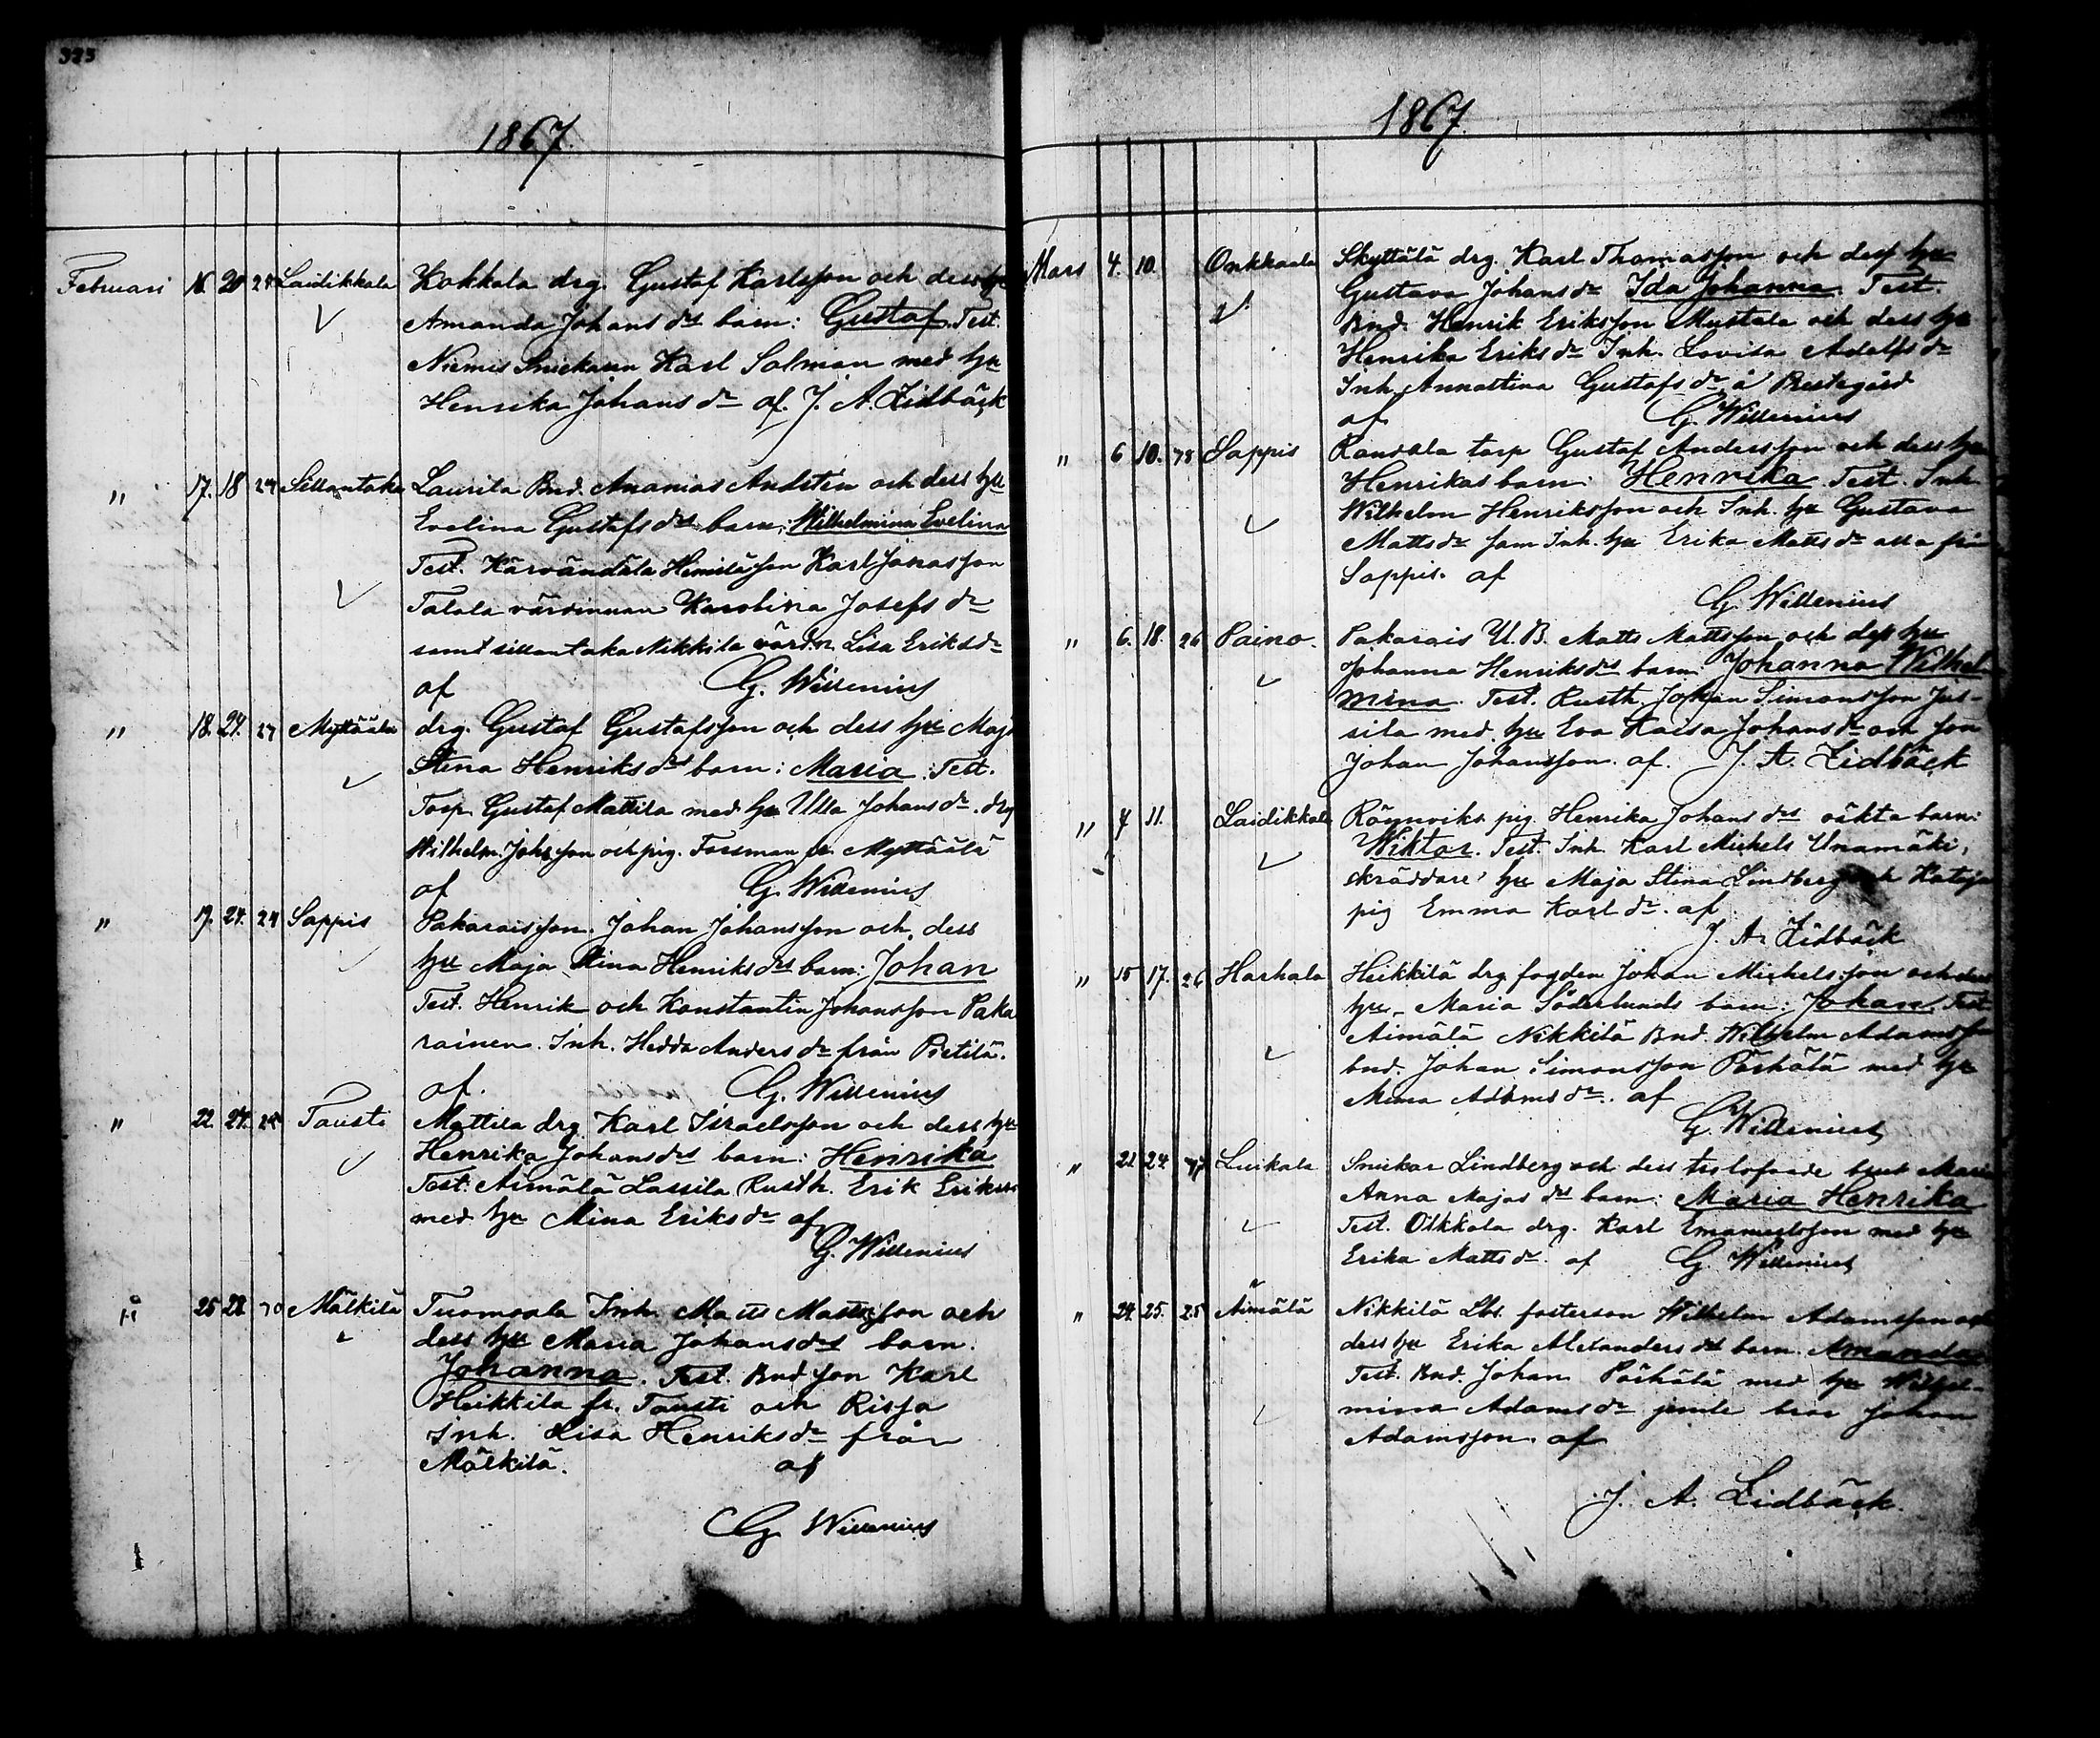 323
1867.
Februari 16. 20 25 Laidikkala Kokkala drg. Gustaf Karlsson och dess hu
Amanda Johansdrs barn: Gustaf. Test.
Niemis Snickaren Karl Salman med hu
Henrika Johansdr af. J. A. Lidbäck
" 17. 18 24 Sillantaka Laurila Bnd. Ananias Andstén och dess hu
Evelina Gustafsdrs barn: Wilhelmina Evelina
Test. Kärvändälä Karl Jonasson
Talala värdinnan Karolina Josefsdr
samt sillantaka Nikkilä värdn Lisa Eriksdr
af G. Willenius
" 18. 24. 27 Myttäälä drg. Gustaf Gustafsson och dess hu Maja
Stina Henriksdrs barn: Maria. Test.
Torp. Gustaf Mattila med hu Ulla Johansdr. drg
Wilhelm Johsson och pig. Forsman fr. Myttäälä
af G. Willenius
" 17. 24. 24 Sappis Pakaraisson. Johan Johansson och dess
hu Maja Stina Henriksdrs barn: Johan
Test. Henrik och Konstantin Johansson Paka
rainen. Inh. Hedda Andersdr från Pietilä.
af. G. Willenius
" 22. 24. 24 Tausti Mattila drg. Karl Israelsson och dess hu
Henrika Johansdrs barn: Henrika
Test. Aimälä Lassila Rusth. Erik Eriksson
med hu Mina Eriksdr af
G. Willenius
" 25 28. 30 Mälkilä Tuomoala Inh. Matts Mattsson och
dess hu Maria Johansdrs barn.
Johanna. Test. Bnd son Karl
Heikkilä fr. Tausti och Risja
Inh. Lisa Henriksdr från
Mälkilä. af
G. Willenius
1867.
Mars 4. 10. Onkkaala Skyttälä drg. Karl Thomasson och dess hu
Gustava Johansdr Ida Johanna. Test.
Bnd. Henrik Eriksson Mustala och dess hu
Henrika Eriksdr Inh. Lovisa Adolfsdr
Inh. Annastina Gustafsdr å Prestegård
af G. Willenius
" 6 10. 78 Sappis torp Gustaf Andersson och dess hu
Henrikas barn: Henrika. Test. Inh.
Wilhelm Henriksson och Inh. hu Gustava
Mattsdr sam Inh. hu Erika Mattsdr alla från
Sappis. af
G. Willenius
" 6. 18. 26 Paino. Pakarais U. B. Matts Mattsson och dess hu
Johanna Henriksdrs barn Johanna Wilhel
mina. Test. Rusth. Johan Simonsson Jus-
sila med hu Eva Kaisa Johansdr och son
Johan Johansson. af. J. A. Lidbäck
" 7 11. Laidikkala pig. Henrika Johansdrs oäkta barn:
Wiktor. Test. Inh. Karl Michels Unamäki,
skräddare hu Maja Stina Lindberg och Kataja
pig Emma Karlsdr. af
J. A. Lidbäck
" 15 17. 26 Harhala Heikkilä drg fogden Johan Michelsson och dess
hu. Maria Söderlunds barn: Johan. Test.
Aimälä Nikkilä Bnd. Wilhelm Adamsson
bnd. Johan Simonsson Pärhälä med hu
Mina Adamsdr. af
G. Willenius
" 21 24. Luikala Snickar Lindberg och dess trolofvade brud Maria
Anna Majas drs barn: Maria Henrika
Test. Olkkola drg. Karl Emanuelsson med hu
Erika Mattsdr. af G. Willenius
" 24. 25. 25 Aimälä Nikkilä Lbs. fosterson Wilhelm Adamsson och
dess hu Erika Alexandersdrs barn. Amanda
Test. Bnd. Johan Pärhälä med hu Wilhel-
mina Adamsdr jemte bror Johan
Adamsson. af
J. A. Lidbäck.